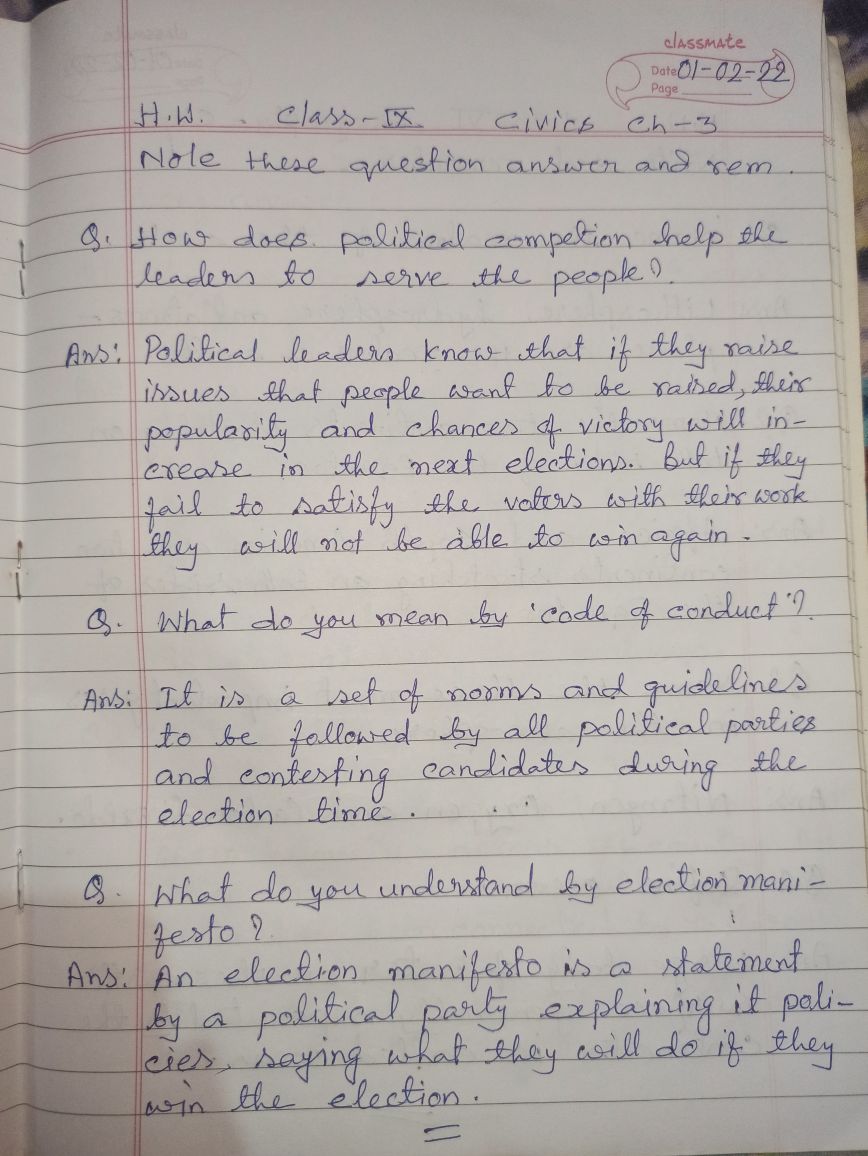 classmate
Date 01-02-22
Page
H.W. Class-IX Civics Ch-3
Note these question answer and rem.
Q. How does political competion help the
leaders to serve the people?
Ans: Political leaders know that if they raise
issues that people want to be raised, their
popularity and chances of victory will in-
crease in the next elections. But if they
fail to satisfy the voters with their work
they will not be able to win again.
Q. What do you mean by 'code of conduct'?
Ans: It is a set of norms and guidelines
to be followed by all political parties
and contesting candidates during the
election time.
Q. What do you understand by election mani-
festo?
Ans: An election manifesto is a statement
by a political party explaining it poli-
cies, saying what they will do if they
win the election.